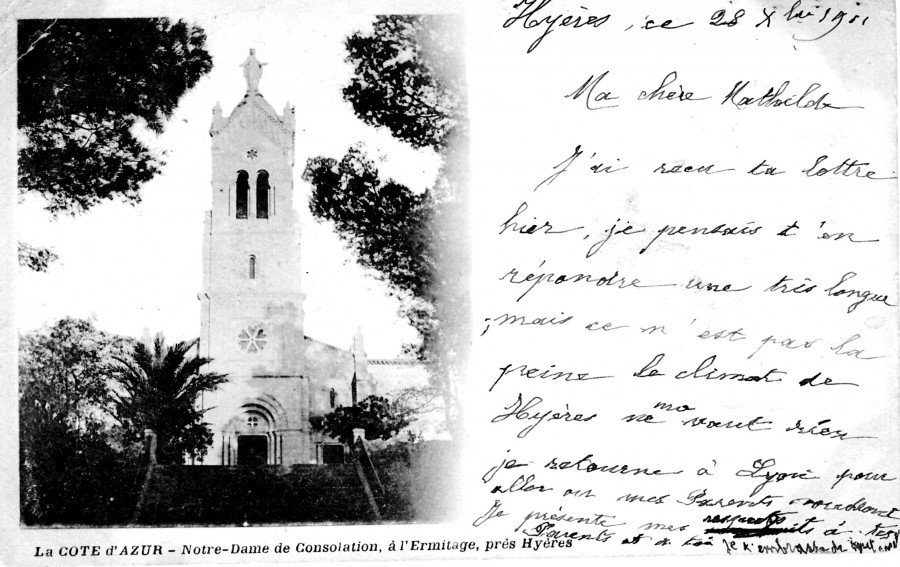 Hyères, ce 28 Xbre 1901
Ma chère Mathilde
J'ai recu ta lettre
hier, je pensais t'en
répondre une très longue
; mais ce n'est pas la
peine le climat de
Hyères ne me vaut rien
je retourne à Lyon pour
aller ou mes Parents voudront
Je présente mes respects à tes
Parents et a toi je t'embrasse de
La COTE d'AZUR – Notre-Dame de Consolation, à l'Ermitage, près Hyères